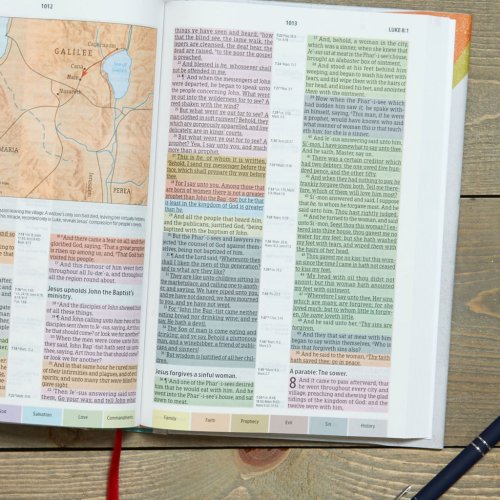 1012
GALILEE
Capernaum
Cana
Nazareth
Nain
MARIA
PEREA
25 And there came a fear on all: and they
glorified God, saying, That a great prophet
is risen up among us; and, That God hath
visited his people.
17 And this rumour of him went forth
throughout all Ju-dæ-a, and throughout
all the region round about.
Jesus upholds John the Baptist's
ministry.
18 And the disciples of John shewed him
of all these things.
19 ¶ And John calling unto him two of his
disciples sent them to Je-sus, saying, Art thou
he that should come? or look we for another?
20 When the men were come unto him,
they said, John Bap-tist hath sent us unto
thee, saying, Art thou he that should come?
or look we for another?
21 And in that same hour he cured many
of their infirmities and plagues, and of evil
spirits; and unto many that were blind he
gave sight.
22 Then Je-sus answering said unto
them, Go your way, and tell John what
Salvation
Love
Commandments
1013
LUKE 8:1
things ye have seen and heard; how
that the blind see, the lame walk, the
lepers are cleansed, the deaf hear, the
dead are raised, to the poor the gospel
is preached.
23 And blessed is he, whosoever shall
not be offended in me.
24 ¶ And when the messengers of John
were departed, he began to speak unto
the people concerning John, What went
ye out into the wilderness for to see? A
reed shaken with the wind?
25 But what went ye out for to see? A
man clothed in soft raiment? Behold, they
which are gorgeously apparelled, and live
delicately, are in kings' courts.
26 But what went ye out for to see? A
prophet? Yea, I say unto you, and much
more than a prophet.
27 This is he, of whom it is written,
Behold, I send my messenger before thy
face, which shall prepare thy way before
thee.
28 For I say unto you, Among those that
are born of women there is not a greater
prophet than John the Bap-tist: but he that
is least in the kingdom of God is greater
than he.
29 And all the people that heard him,
and the publicans, justified God, being
baptized with the baptism of John.
30 But the Phar-i-sees and lawyers re-
jected the counsel of God against them-
selves, being not baptized of him.
31 ¶ And the Lord said, Whereunto then
shall I liken the men of this generation?
and to what are they like?
32 They are like unto children sitting in
the marketplace, and calling one to anoth-
er, and saying, We have piped unto you,
and ye have not danced; we have mourned
to you, and ye have not wept.
33 For John the Bap-tist came neither
eating bread nor drinking wine; and ye
say, He hath a devil.
34 The Son of man is come eating and
drinking; and ye say, Behold a gluttonous
man, and a winebibber, a friend of publi-
cans and sinners!
35 But wisdom is justified of all her chil-
dren.
Jesus forgives a sinful woman.
36 ¶ And one of the Phar-i-sees desired
him that he would eat with him. And he
went into the Phar-i-see's house, and sat
down to meat.
37 And, behold, a woman in the city,
which was a sinner, when she knew that
Je-sus sat at meat in the Phar-i-see's house,
brought an alabaster box of ointment,
38 And stood at his feet behind him
weeping, and began to wash his feet with
tears, and did wipe them with the hairs of
her head, and kissed his feet, and anointed
them with the ointment.
39 Now when the Phar-i-see which
had bidden him saw it, he spake with-
in himself, saying, This man, if he were
a prophet, would have known who and
what manner of woman this is that touch-
eth him: for she is a sinner.
40 And Je-sus answering said unto him,
Si-mon, I have somewhat to say unto thee.
And he saith, Master, say on.
41 There was a certain creditor which
had two debtors: the one owed five hun-
dred pence, and the other fifty.
42 And when they had nothing to pay, he
frankly forgave them both. Tell me there-
fore, which of them will love him most?
43 Si-mon answered and said, I suppose
that he, to whom he forgave most. And he
said unto him, Thou hast rightly judged.
44 And he turned to the woman, and said
unto Si-mon, Seest thou this woman? I en-
tered into thine house, thou gavest me no
water for my feet: but she hath washed
my feet with tears, and wiped them with
the hairs of her head.
45 Thou gavest me no kiss: but this wom-
an since the time I came in hath not ceased
to kiss my feet.
46 My head with oil thou didst not
anoint: but this woman hath anointed
my feet with ointment.
47 Wherefore I say unto thee, Her sins,
which are many, are forgiven; for she
loved much: but to whom little is forgiv-
en, the same loveth little.
48 And he said unto her, Thy sins are
forgiven.
49 And they that sat at meat with him
began to say within themselves, Who is
this that forgiveth sins also?
50 And he said to the woman, Thy faith
hath saved thee; go in peace.
A parable: The sower.
8 And it came to pass afterward, that
he went throughout every city and
village, preaching and shewing the glad
tidings of the kingdom of God: and the
twelve were with him,
Family
Faith
Prophecy
Evil
Sin
History